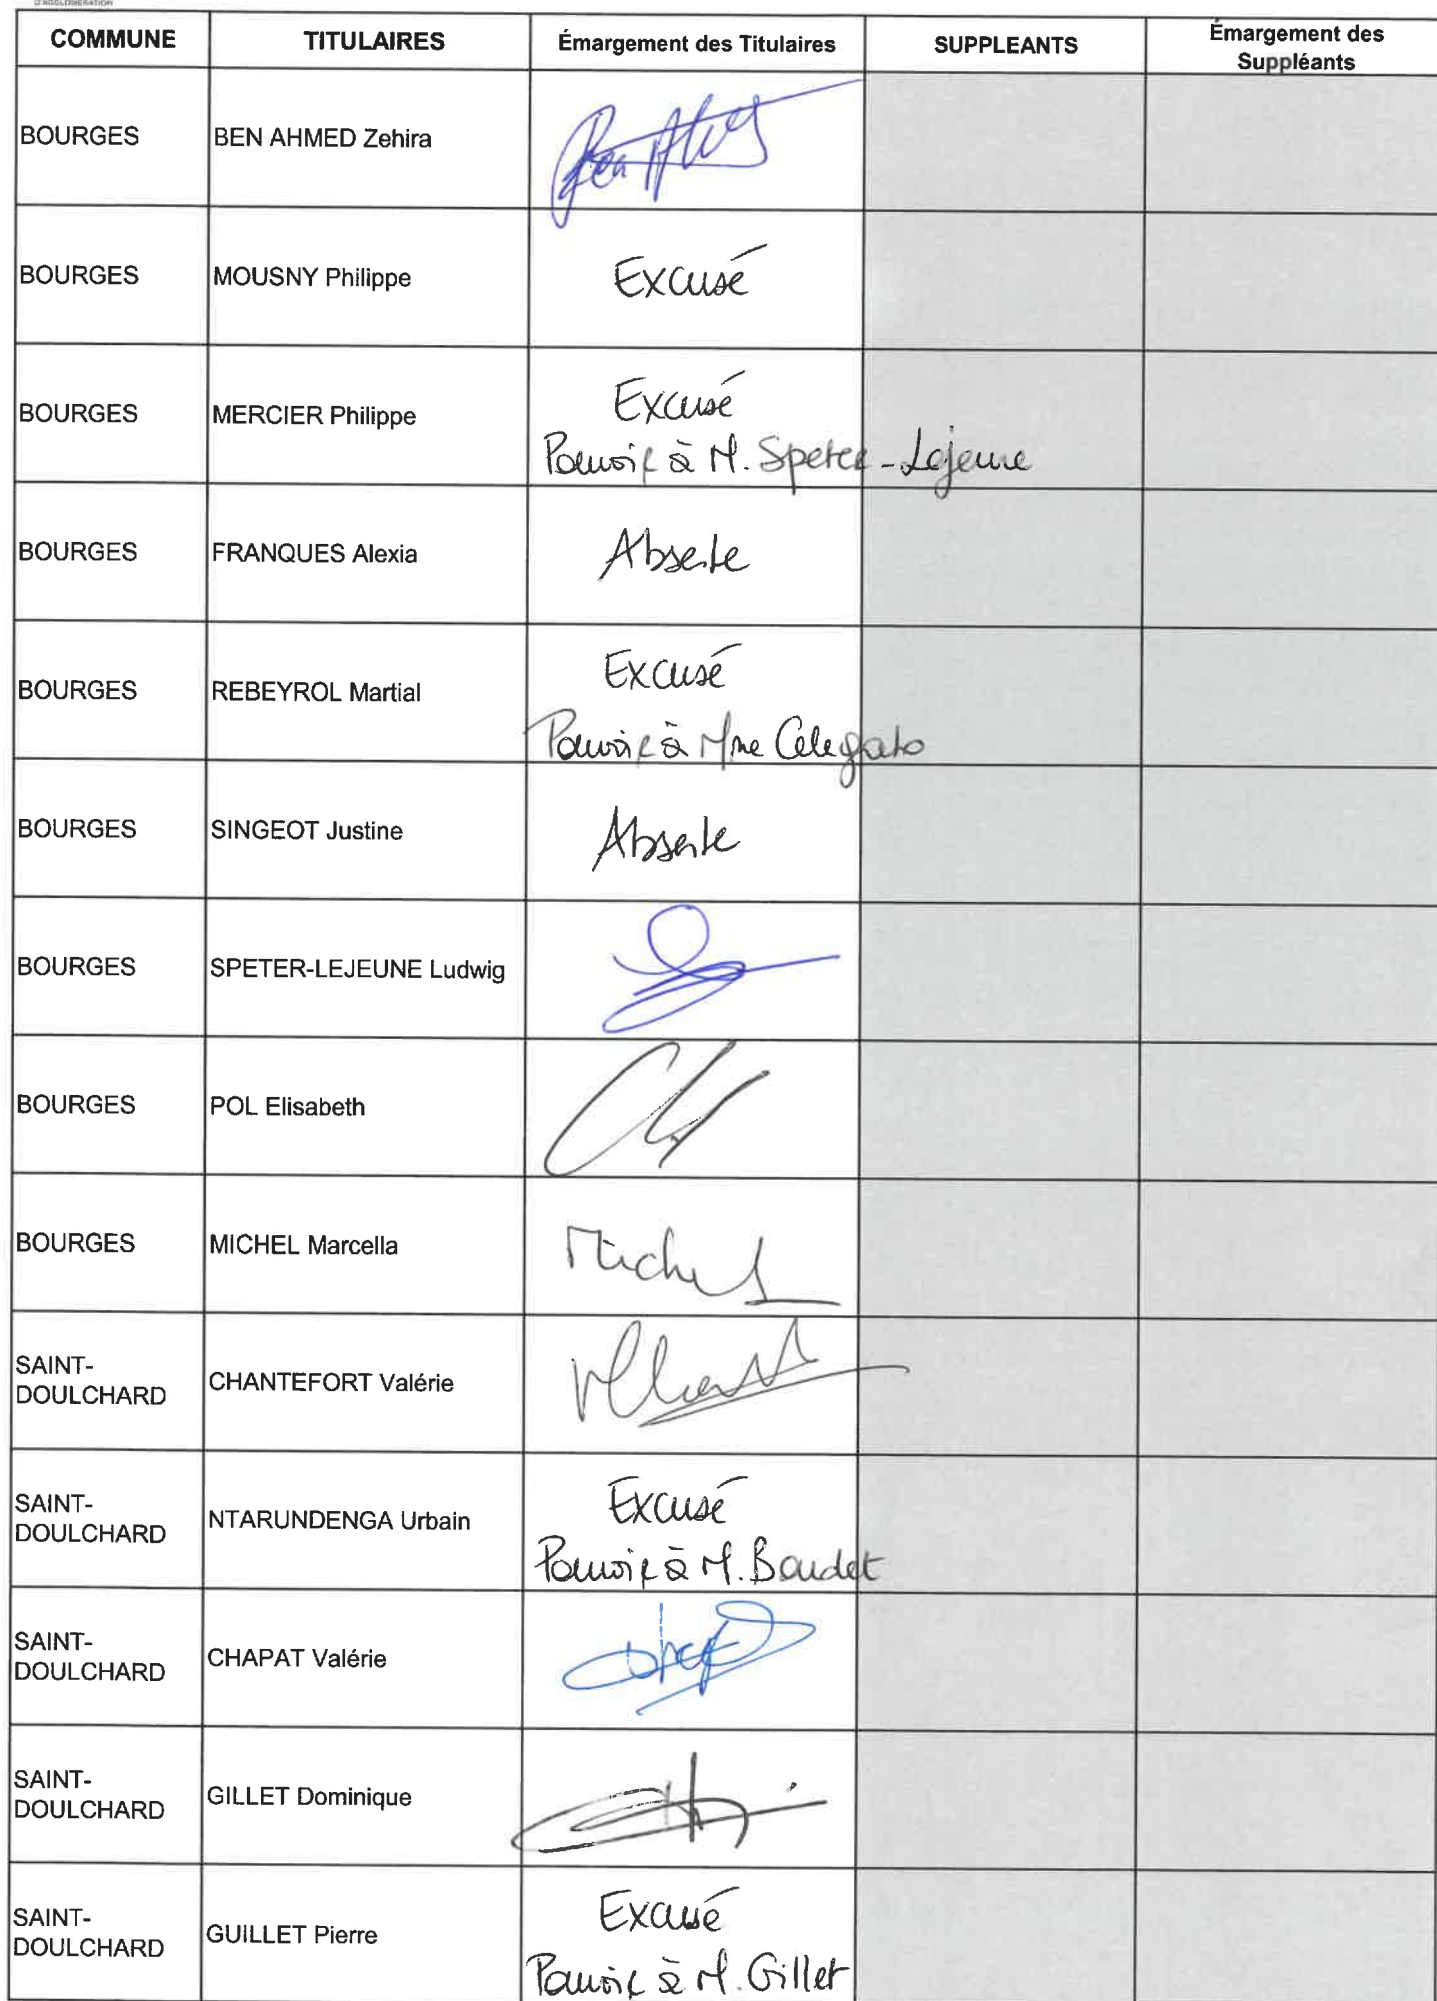 D'AGGLOMERATION
COMMUNE TITULAIRES Émargement des Titulaires SUPPLEANTS Émargement des
Suppléants
BOURGES BEN AHMED Zehira
BOURGES MOUSNY Philippe Excusé
BOURGES MERCIER Philippe Excusé
Pouvoir à M. Speter-Lejeune
BOURGES FRANQUES Alexia Absente
BOURGES REBEYROL Martial Excusé
Pouvoir à Mme Celegato
BOURGES SINGEOT Justine Absente
BOURGES SPETER-LEJEUNE Ludwig
BOURGES POL Elisabeth
BOURGES MICHEL Marcella Michel
SAINT-
DOULCHARD CHANTEFORT Valérie
SAINT-
DOULCHARD NTARUNDENGA Urbain Excusé
Pouvoir à M. Boudet
SAINT-
DOULCHARD CHAPAT Valérie
SAINT-
DOULCHARD GILLET Dominique
SAINT-
DOULCHARD GUILLET Pierre Excusé
Pouvoir à M. Gillet